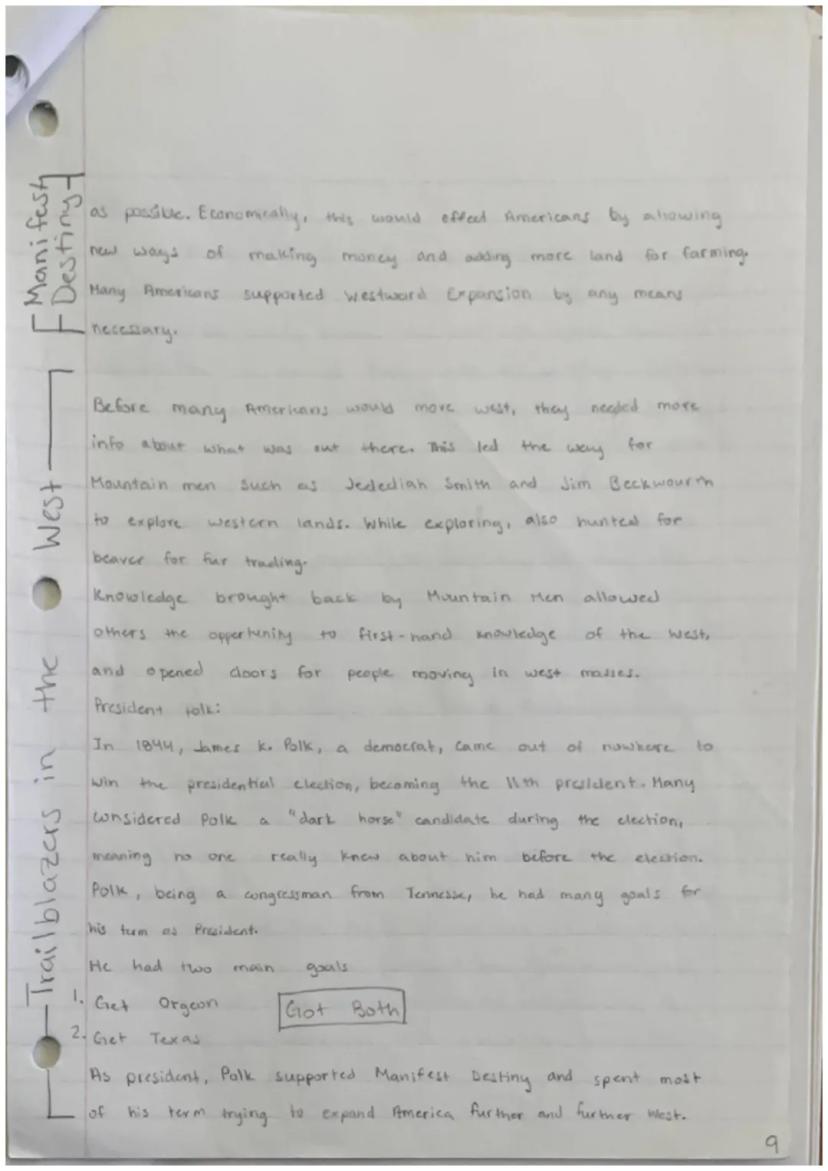 Manifest
Destiny
as possible. Economically, this would effect Americans by allowing
new ways of making money and adding more land for farming.
Many Americans supported Westward Expansion by any means
necessary.
Trailblazers in the West
Before many Americans would move west, they needed more
info about what was out there. This led the way for
Mountain men such as Jedediah Smith and Jim Beckwourth
to explore western lands. While exploring, also hunted for
beaver for fur trading.
Knowledge brought back by Mountain Men allowed
others the oppertunity to first-hand knowledge of the West,
and opened doors for people moving in west masses.
President Polk:
In 1844, James K. Polk, a democrat, came out of nowhere to
win the presidential election, becoming the 11th president. Many
considered Polk a "dark horse" candidate during the election,
meaning no one really knew about him before the election.
Polk, being a congressman from Tennesse, he had many goals for
his term as President.
He had two main goals
1. Get Orgeon
Got Both
2. Get Texas
As president, Polk supported Manifest Destiny and spent most
of his term trying to expand America further and further West.
9